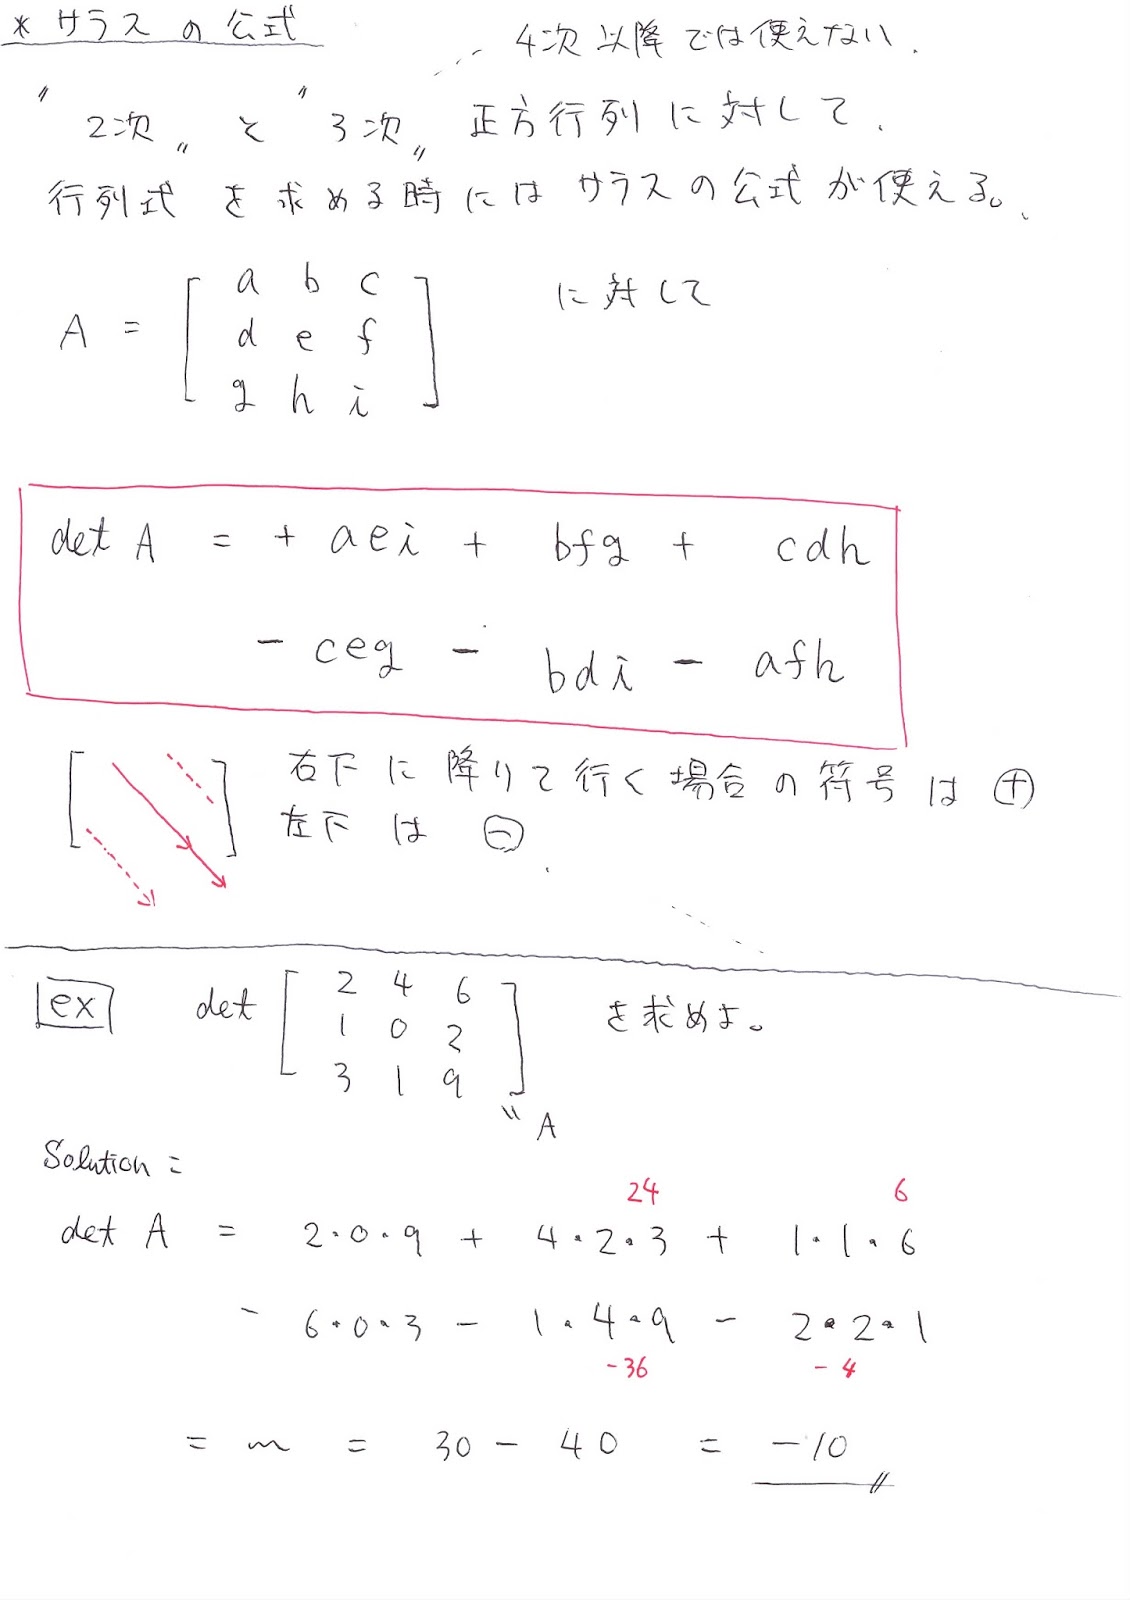 * サラスの公式
4次以降では使えない.
"2次„ と "3次„ 正方行列に対して.
行列式を求める時にはサラスの公式が使える。
A = [ a b c に対して
d e f
g h i ]
det A = + aei + bfg + cdh
- ceg - bdi - afh
右下に降りて行く場合の符号は ⊕
左下は ⊖
ex det [ 2 4 6 を求めよ。
1 0 2
3 1 9 ]
" A
Solution =
24 6
det A = 2・0・9 + 4・2・3 + 1・1・6
- 6・0・3 - 1・4・9 - 2・2・1
-36 -4
= 〜 = 30 - 40 = -10